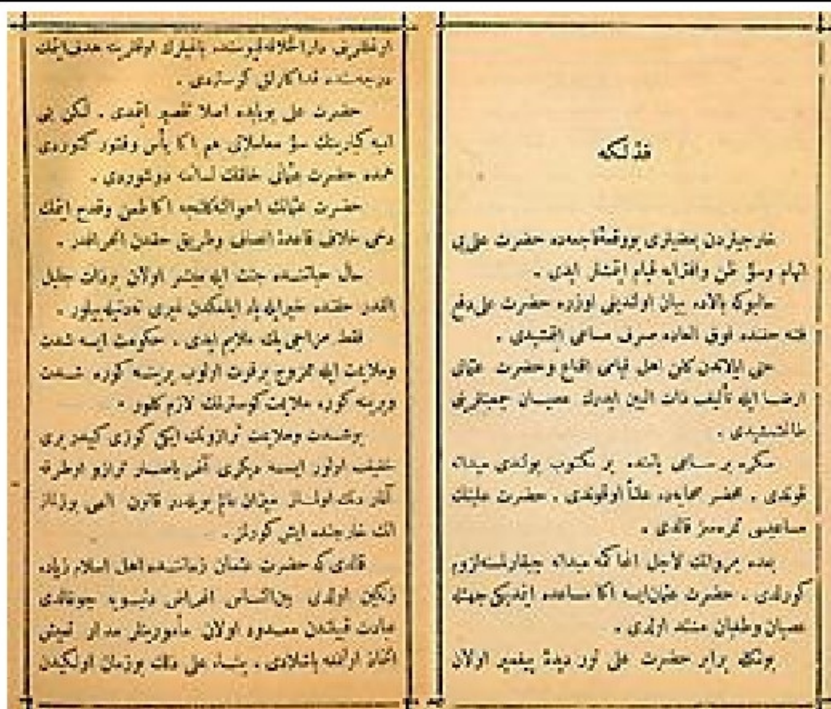 فذلكه
خارجیلردن بعضیلری بو وقعهٔ فاجعه‌ده حضرت علی‌یی
اتهام وسؤ ظن وافترایه قیام ایتمشلر ایدی .
سالبوكه بالاده بیان اولندیغی اوزره حضرت علی دفع
فتنه حقنده فوق العاده صرف مساعی ایتمشیدی .
حتی ایالاتدن كلن اهل قیامی اقناع وحضرت عثمانی
ارضا ایله تألیف ذات البین ایدرك عصیان جمعیتلرینی
طاغتمشیدی .
صكره بر ساعی یاننده بر مكتوب بولندی میدانه
قوندی . محضر صحابه‌ده علناً اوقوندی . حضرت علینك
مساعیسی ثمره‌سز قالدی .
بعده مروانك لاجل المحاكمه میدانه چیقارلمسنه لزوم
كورلدی . حضرت عثمان ایسه اكا مساعده ایتمدیكی جهتله
عصیان وطغیان ممتد اولدی .
بونكله برابر حضرت علی نور دیدهٔ پیغمبر اولان
اوغللرینی دار الخلافه قپوسنده باغیلرك اوقلرینه هدف ایتمك
درجه‌سنده فداكارلق كوستردی .
حضرت علی بو بابده اصلا تقصیر ایتمدی . لكن بنی
امیه كبارینك سؤ معاملاتی هم اكا یأس وفتور كتوردی
همده حضرت عثمانی خلقك لساننه دوشوردی .
حضرت عثمانك احوالنه كلنجه اكا طعن وقدح ایتمك
دخی خلاف قاعدهٔ انصاف وطریق حقدن انحرافدر .
حال حیاتنده جنت ایله مبشر اولان بر ذات جلیل
القدر حقنده خیر ایله یاد ایلمكدن غیری نه دنیله بیلور .
فقط مزاجی پك ملایم ایدی . حكومت ایسه شدت
وملایمت ایله ممزوج بر قوت اولوب یرینه كوره شدت
ویرینه كوره ملایمت كوسترمك لازم كلور .
بو شدت وملایمت ترازونك ایكی كوزی كبیدر بری
خفیف اولور ایسه دیكری آغیر باصار ترازو او طرفه
آغار دنك اولماز میزان عالم بویله‌در قانون الهی بوزلماز
انك خارجنده ایش كورلمز .
قالدی كه حضرت عثمان زماننده اهل اسلام زیاده
زنكین اولدی بین الناس اغراض دنیویه چوغالدی
عبادت قبیلندن معدود اولان مأموریتلر مدار تعیش
اتخاذ اولنمغه باشلادی . بناءً علی ذلك بو زمان اولكیدن